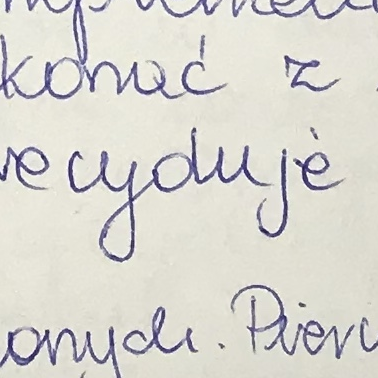 konać z
recyduje
onych. Pierw